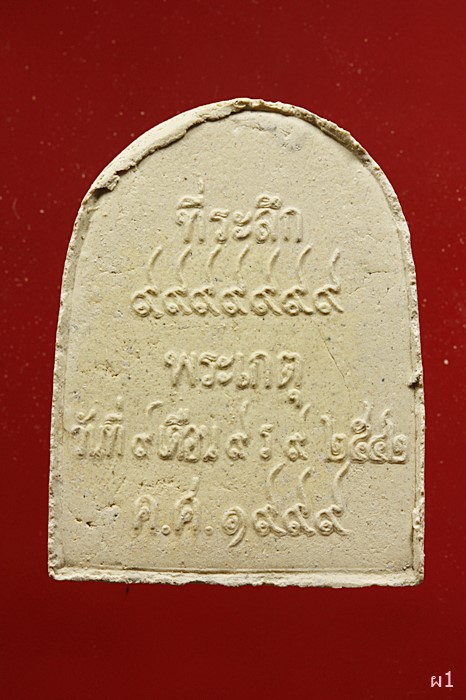 ที่ระลึก
๙๙๙๙๙๙๙
พระเกตุ
วันที่ ๙ เดือน ๙ ร ๙ ๒๕๔๒
ค.ศ. ๑๙๙๙
ผ1